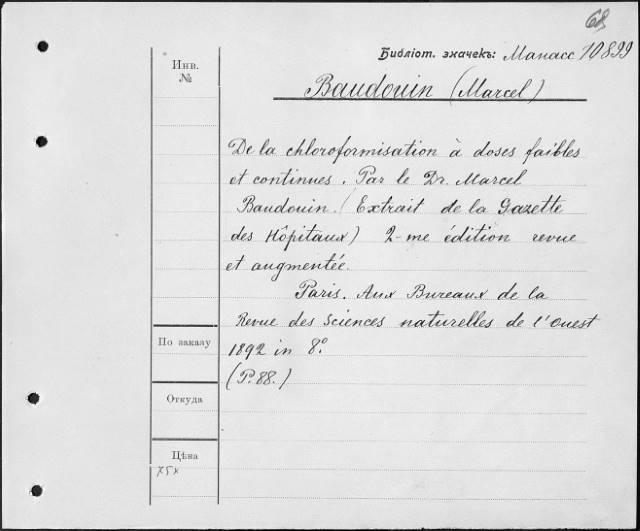 68
Библіот. значекъ: Манасс 10899
Инв.
№
Baudouin (Marcel)
De la chloroformisation à doses faibles
et continues. Par le Dr. Marcel
Baudouin. (Extrait de la Gazette
des Hôpitaux) 2-me édition revue
et augmentée.
Paris. Aux Bureaux de la
Revue des Sciences naturelles de l'Ouest
1892 in 8º.
(P. 88.)
По заказу
Откуда
Цѣна